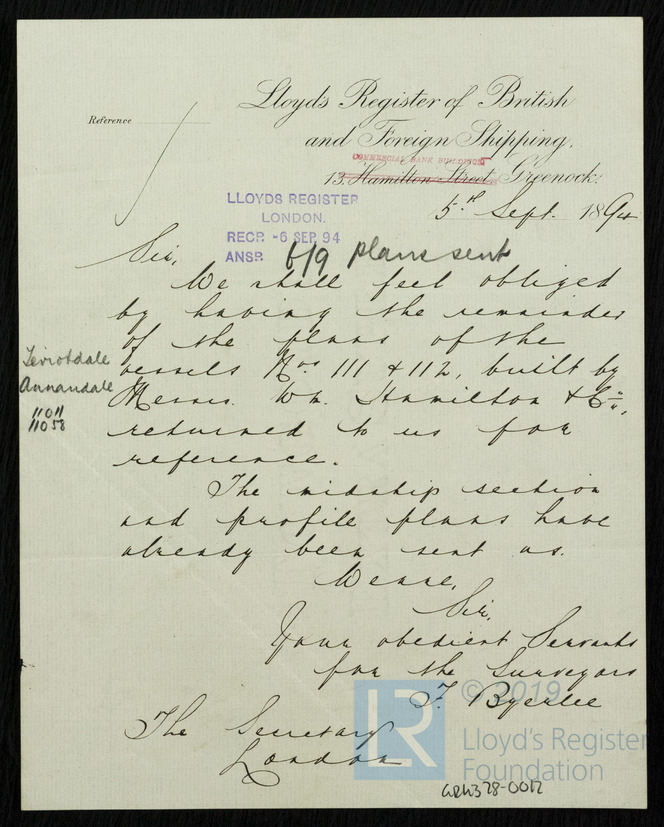 Reference
Lloyd's Register of British
and Foreign Shipping.
COMMERCIAL BANK BUILDINGS
13, Hamilton Street, Greenock.
5th Sept. 1894
LLOYDS REGISTER
LONDON.
RECD. -6 SEP. 94
ANSD.
6/9 plans sent
Sir,
We shall feel obliged
by having the remainder
of the plans of the
vessels Nos 111 & 112, built by
Teviotdale
Annandale
11011
11058
Messrs. Wm. Hamilton & Co.,
returned to us for
reference.
The midship section
and profile plans have
already been sent us.
We are,
Sir,
Your obedient Servants
for the Surveyors
F. Byerlee
The Secretary
London
LR
© 2019
Lloyd's Register
Foundation